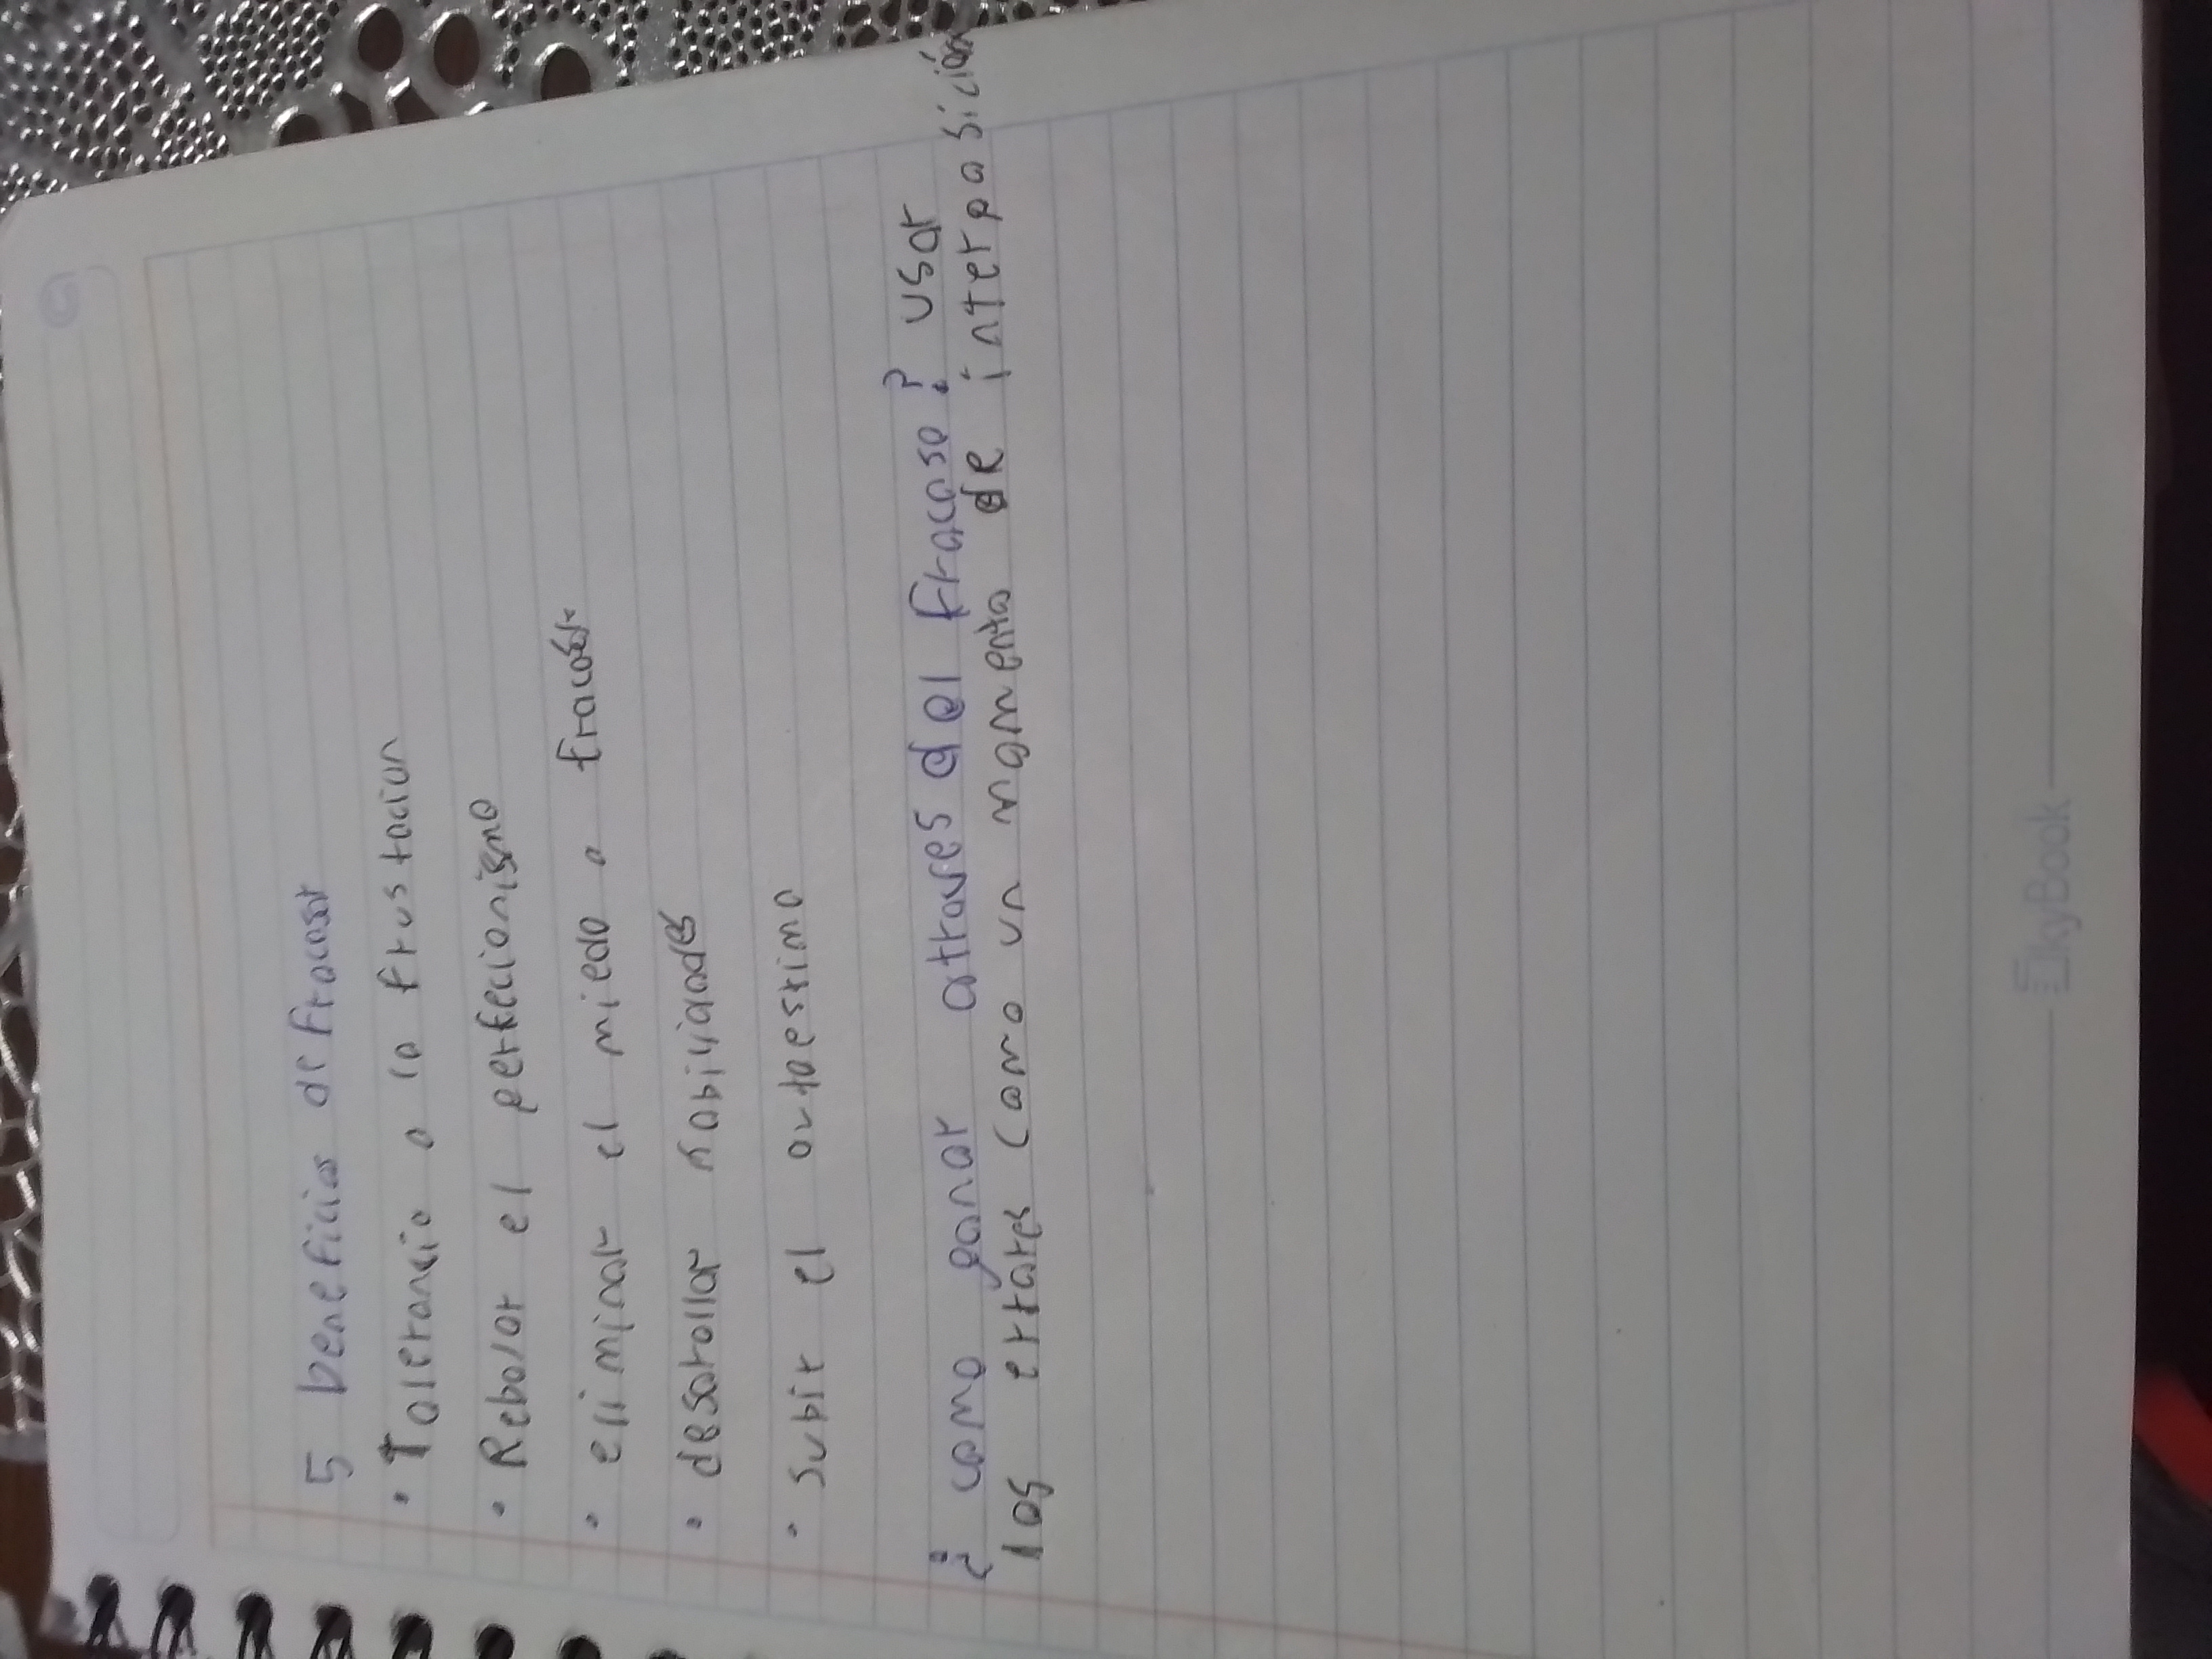 5 beneficios de fracasar
• Tolerancia a la frustacion
• Rebolar el perfecionismo
• eliminar el miedo a fracasar
• desarollar habiliades
• subir el autoestima
¿ como ganar atraves del fracaso? usar
los errores como un momento de interposición
ElkyBook